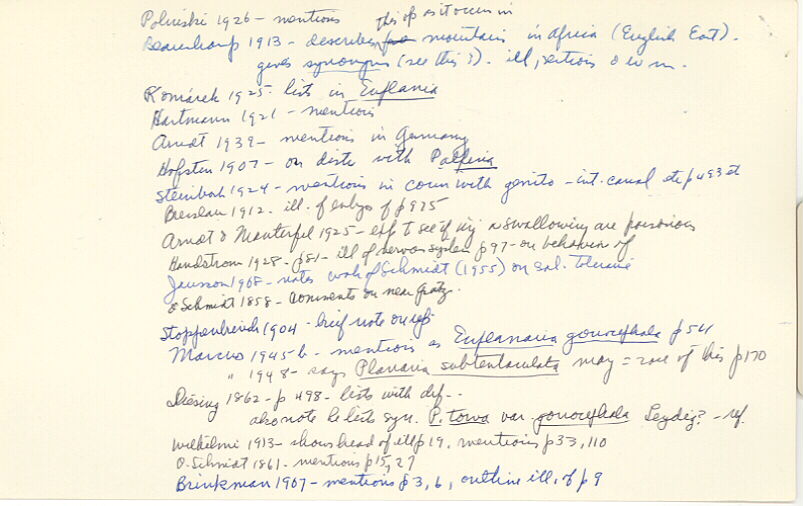 Polinski 1926 - mentions this sp as it occurs in
Beauchamp 1913 - describes mountains in Africa (English East).
gives synonyms (see this?). ill, sections
Komárek 1925 - lists in Euplanaria
Hartmann 1921 - mentions
Arndt 1939 - mentions in Germany
Hofsten 1907 - on distr with P. alpina
Steinbock 1924 - mentions in conn with genito - int. canal etc p 493
Bresslau 1912. ill. of embryo of p 975
Arndt & Manteufel 1925 - exp to see if inj & swallowing are poisonous
Handstrom 1928 - p81 - ill of nervous system p97 - on behavior of
Jansson 1968 - notes work of Schmidt (1955) on sal. tolerance
O Schmidt 1858 - comments on near Gratz.
Stoppenbrink 1904 - brief note on
Marcus 1945 b - mentions as Euplanaria gonocephala p 54
" 1948 - says Planaria subtentaculata may = race of this p 170
Diesing 1862 - p 498 - lists with def -.
also note he lists syn. P. torva var. gonocephala Leydig? - ref.
Wilhelmi 1913 - shows head of ill p 19, mentions p 33, 110
O. Schmidt 1861 - mentions p 15, 27
Brinkman 1907 - mentions p 3, 6, outline ill. of p 9